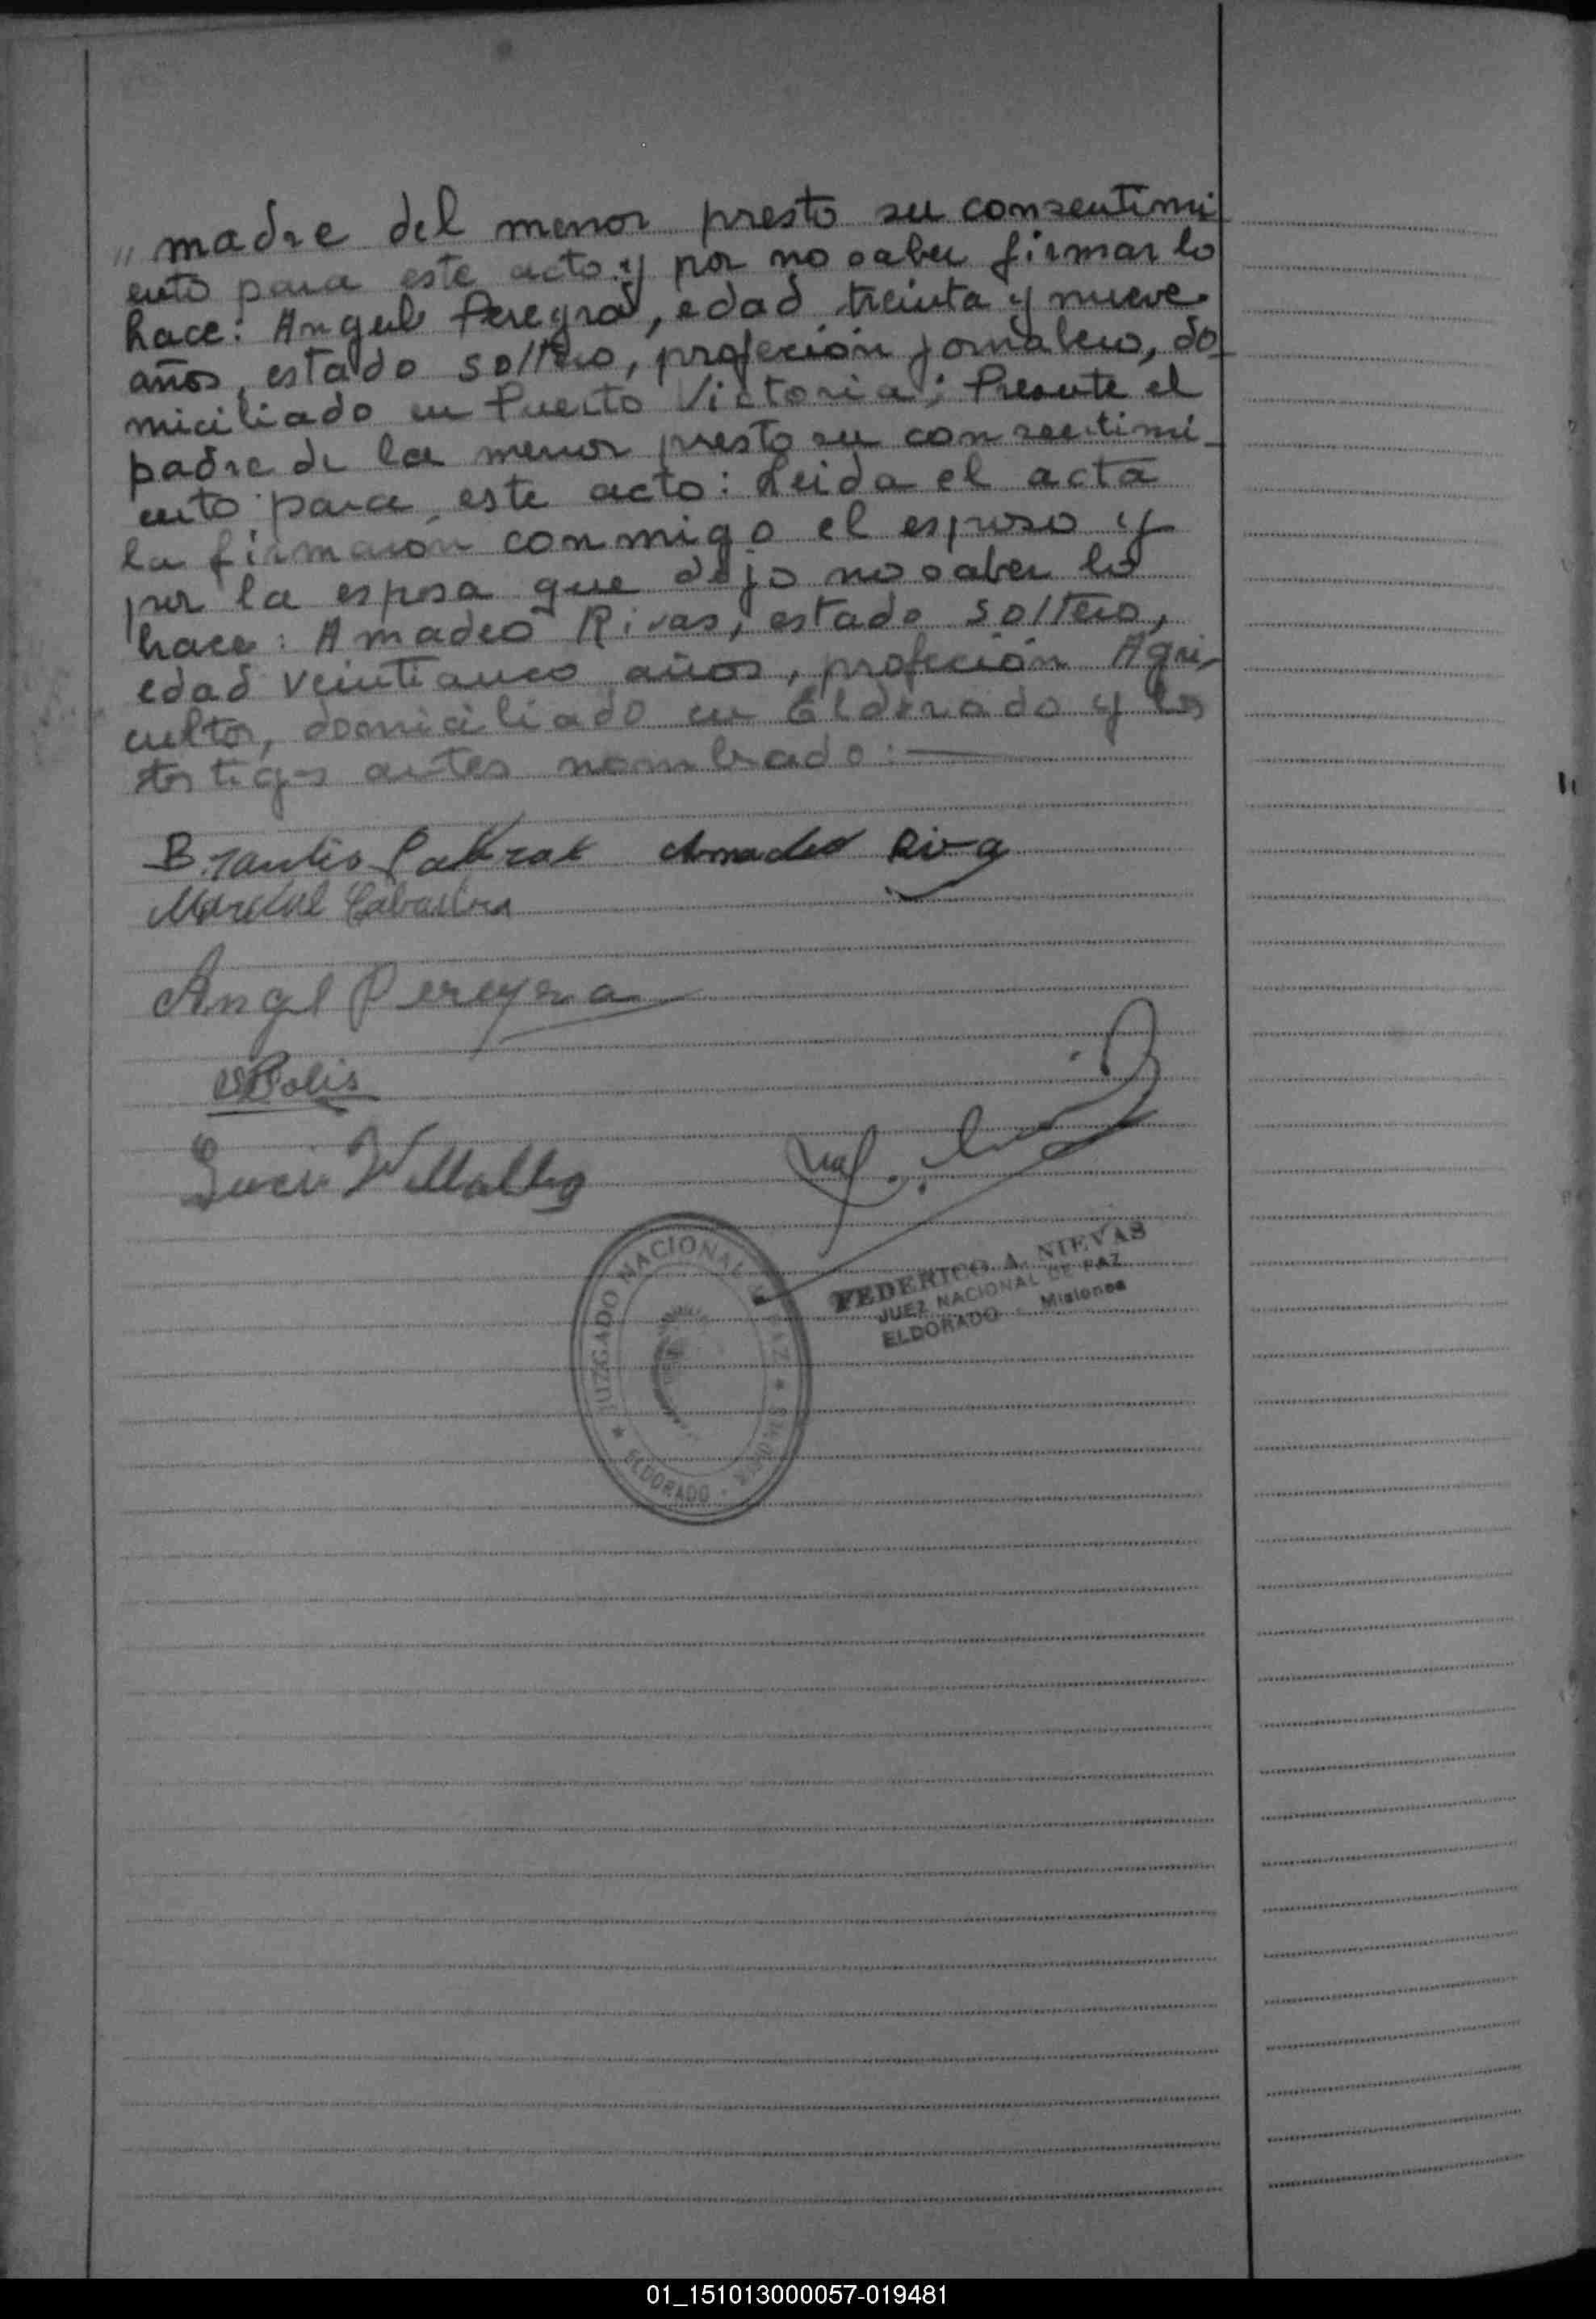 " madre del menor presto su consentimi
ento para este acto y por no saber firmar lo
hace: Angel Pereyra, edad treinta y nueve
años, estado soltero, profeción jornalero, do
miciliado en Puerto Victoria; Presente el
padre de la menor presto su consentimi-
ento para este acto: Leida el acta
la firmaron conmigo el esposo y
por la esposa que dijo no saber lo
hace: Amadeo Rivas, estado soltero,
edad veinticinco años, profeción Agri-
cultor, domiciliado en Eldorado y los
testigos antes nombrado:
Cabral Amadeo Riva
Angel Pereyra
Solis
Villalba
JUZGADO NACIONAL DE PAZ
ELDORADO
FEDERICO A. NIEVAS
JUEZ NACIONAL DE PAZ
ELDORADO - Misiones
01_151013000057-019481